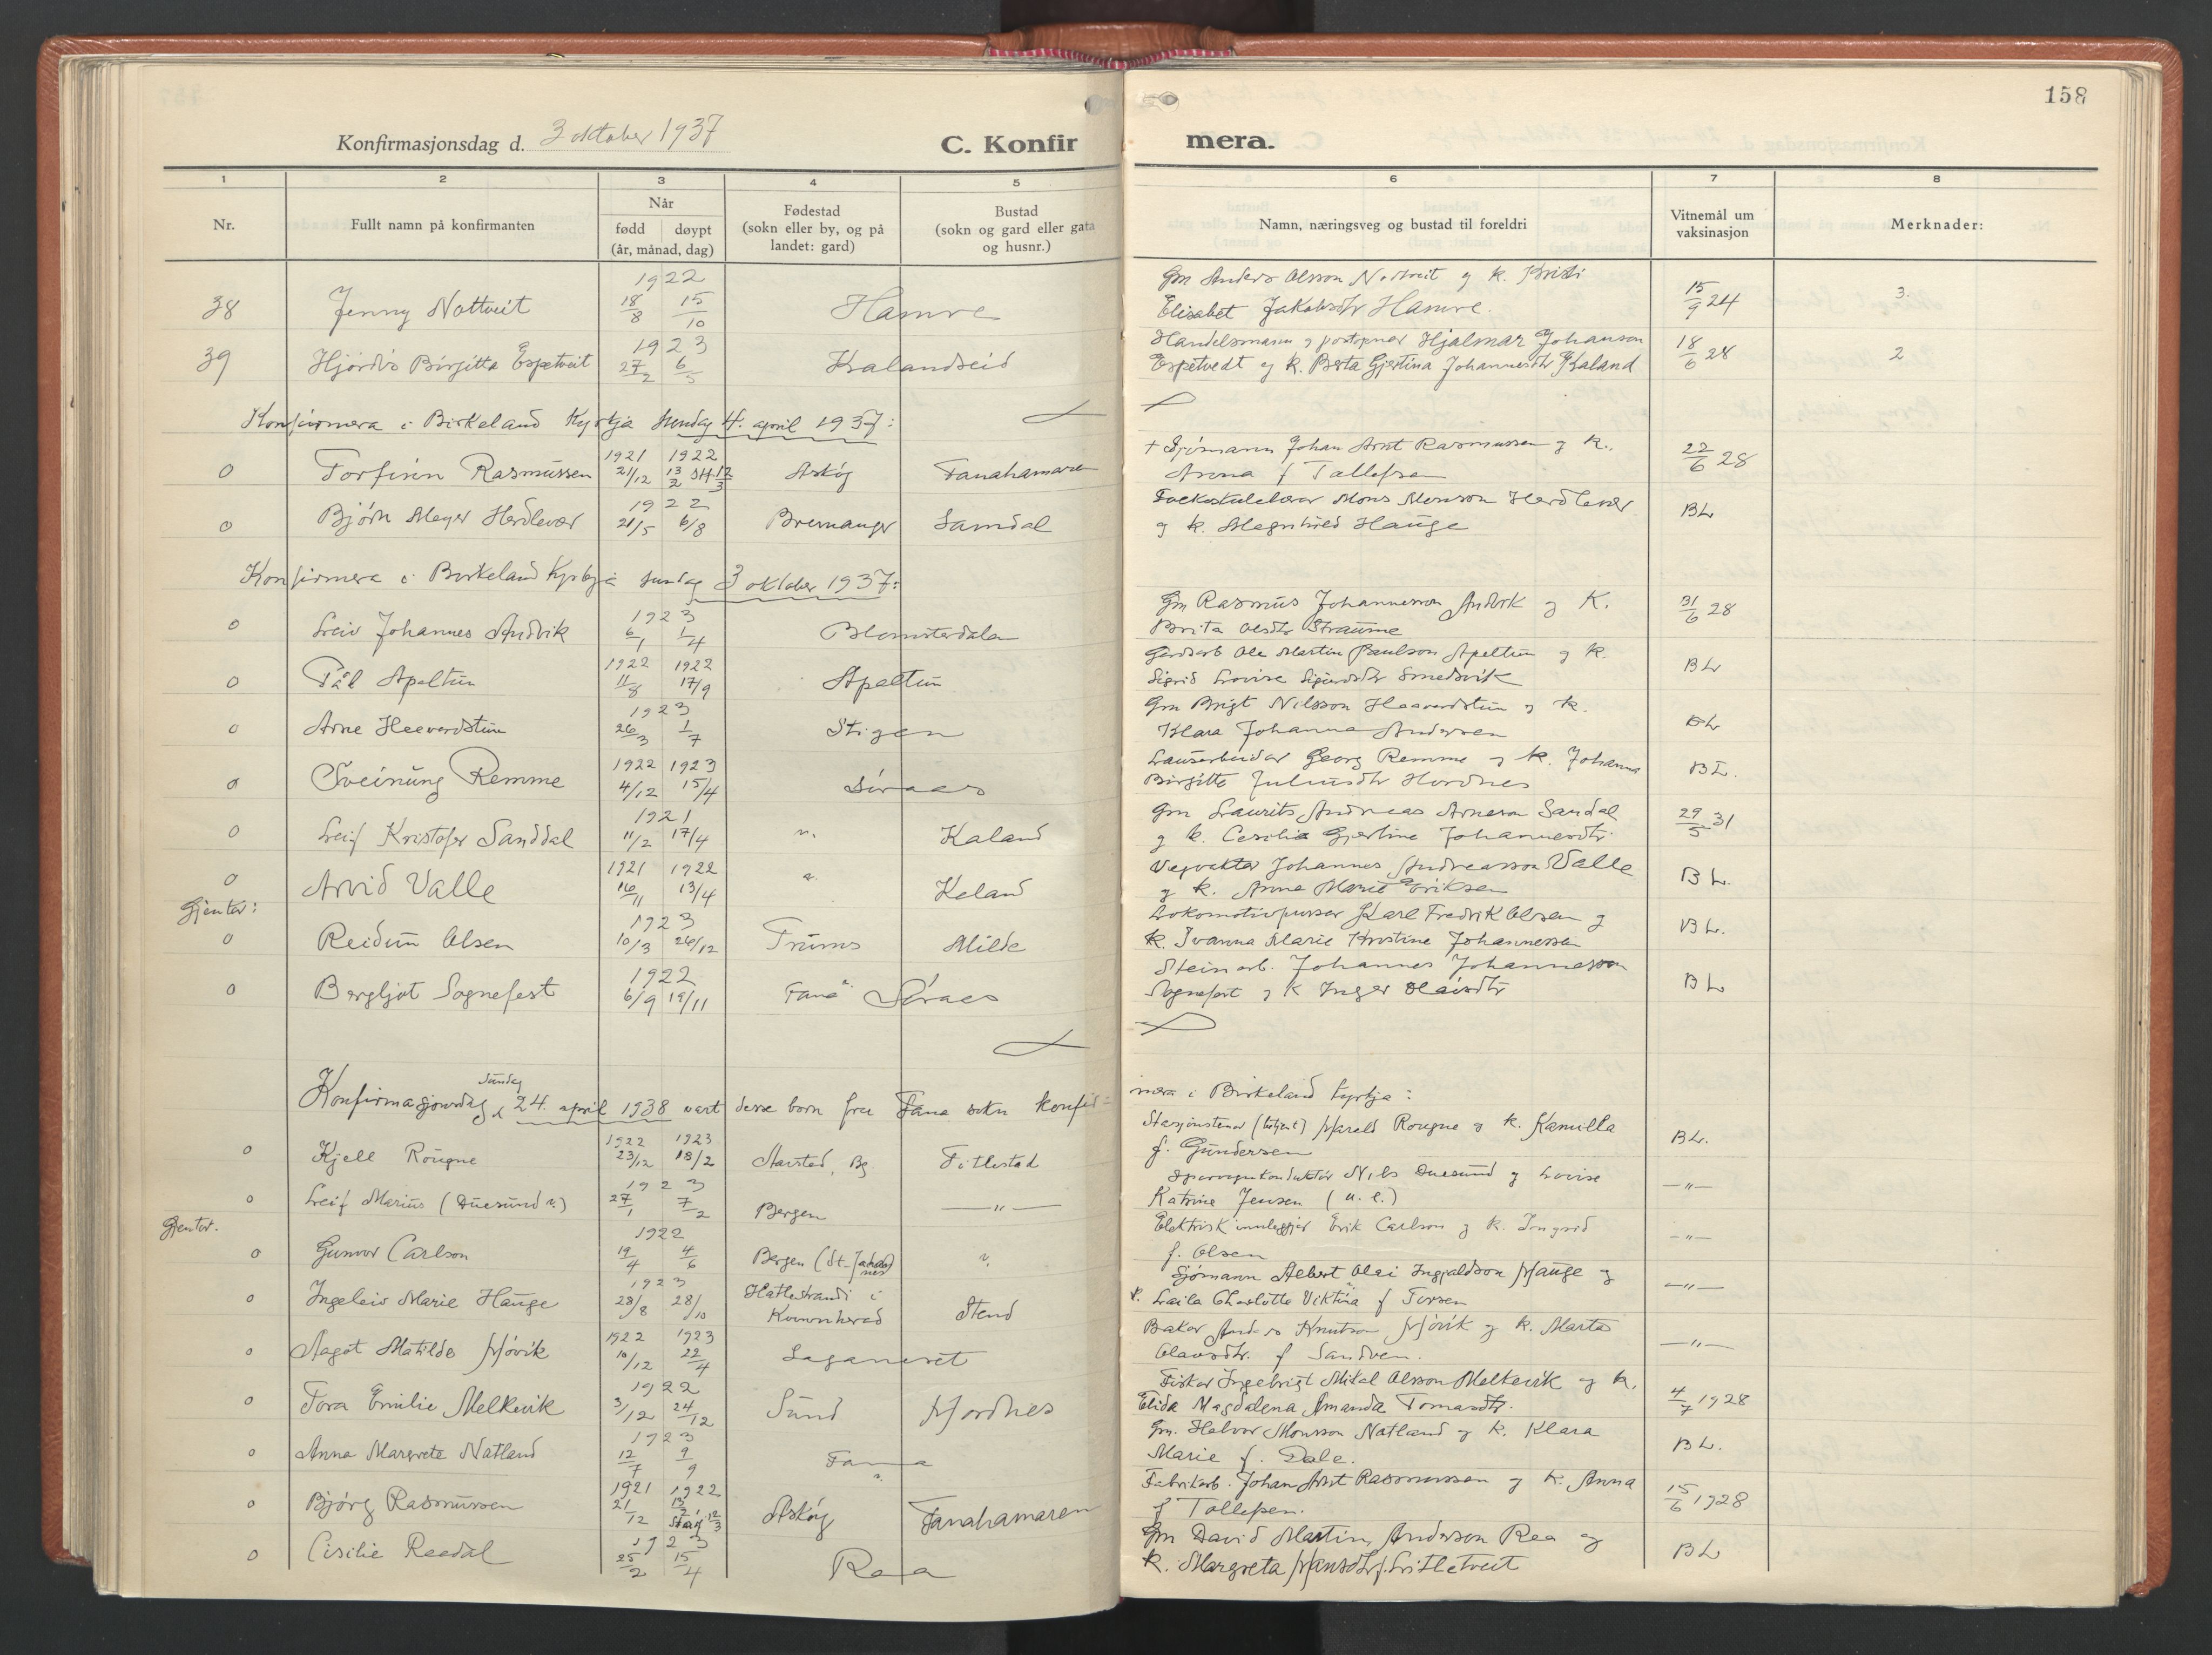 158
Konfirmasjonsdag d. 3 oktober 1937
C. Konfirmera.
1 2 3 4 5 6 7 8
Nr.
Fullt namn på konfirmanten
Når
fødd døypt
(år, månad, dag)
Fødestad
(sokn eller by, og på
landet: gard)
Bustad
(sokn og gard eller gata
og husnr.)
Namn, næringsveg og bustad til foreldri
Vitnemål um
vaksinasjon
Merknader:
38 Jenny Nottveit 1922 18/8 15/10 Hamre
Gm Anders Olsson Nottveit og k. Kristi
Elisabet Jakobsdtr Hamre. 15/9 24 3.
39 Hjørdis Birgitta Espetveit 1923 27/2 6/5 Kalandseid
Handelsmann og postopnar Hjalmar Johanson
Espetvedt og k. Berta Gjertina Johannesdtr Kaland 18/6 28 2
Konfirmera i Birkeland Kyrkja sundag 4. april 1937:
0 Torfinn Rasmussen 1921 21/12 1922 13/2 St 12/3 Askøy Fanahamaren
+ Sjømann Johan Arnt Rasmussen og k.
Anna f Tollefsen 22/6 28
0 Bjørn Meyer Herdlevær 1922 21/5 6/8 Bremanger Samdal
Folkeskulelærar Mons Monsson Herdlevær
og k. Magnhild Hauge BL
Konfirmera i Birkeland Kyrkja sundag 3 oktober 1937:
0 Leiv Johannes Andvik 1923 6/1 1/4 Blomsterdalen
Gm Rasmus Johannesson Andvik og K.
Brita Olsdtr Straume 31/6 28
0 Pål Apeltun 1922 11/8 1922 17/9 Apeltun
Gardsarb Ole Martin Paulson Apeltun og k.
Sigrid Lovise Sigurdsdtr Smedsvik BL
0 Arne Haavardstun 1923 26/3 1/7 Stigen
Gm Brigt Nilsson Haavardstun og k.
Klara Johanna Andersen BL
0 Sveinung Remme 1922 4/12 1923 15/4 Søraas
Lausarbeidar Georg Remme og k. Johanna
Birgitte Juliusdtr Hordnes BL.
0 Leif Kristofer Sanddal 1921 11/2 17/4 " Kaland
Gm Laurits Andreas Arneson Sandal
og k. Cecilia Gjertine Johannesdtr. 29/5 31
0 Arvid Valle 1921 16/11 1922 13/4 " Keland
Vegvaktar Johannes Andreasson Valle
og k. Anna Marie Eriksen BL.
Gjentor:
0 Reidun Olsen 1923 10/3 26/12 Trums Milde
Lokomotivpusser Karl Fredrik Olsen og
k. Ivanna Marie Kristine Johannesen BL.
0 Bergljot Sognefest 1922 6/9 19/11 Fana Søraas
Steinarb. Johannes Johannesson
Sognefest og k Inger Olaisdtr BL
Konfirmasjonsdag d sundag 24. april 1938 vart desse born fra Fana sokn konfirmera i Birkeland kyrkja:
0 Kjell Rougne 1922 23/12 1923 18/2 Aarstad, Bg. Titlestad
Stasjonstenar Harald Rougne og k. Kamilla
f. Gundersen BL.
0 Leif Marius (Duesund) 1923 27/1 7/2 Bergen —"—
Sporvognkonduktør Nils Duesund og Lovise
Katrine Jensen (u. e.) —"—
Gjentor.
0 Gunvor Carlson 1922 19/4 4/6 Bergen (St. Johannes) "
Elektrisk innleggjar Erik Carlson og k. Ingrid
f. Olsen —"—
0 Ingeleiv Marie Hauge 1923 28/8 28/10 Hatlestrand i Kvinnherad Stend
Sjømann Albert Olai Ingjaldson Hauge og
k. Laila Charlotte Viktoria f Torsen —"—
0 Aagot Matilde Høvik 1922 10/12 1923 22/4 Laganeset
Baker Anders Knutson Høvik og k. Marta
Olavsdtr. f Sandven. —"—
0 Tora Emilie Melkevik 1922 3/12 24/12 Sund Hordnes
Fiskar Ingebrigt Mikal Olsson Melkevik og k.
Elida Magdalena Amanda Tomasdtr. 4/7 1928
0 Anna Margrete Natland 1923 12/7 9/9 Fana
Gm. Halvor Monsson Natland og k. Klara
Marie f. Dale. BL.
0 Bjørg Rasmussen 1921 21/12 1922 13/2 Stad 12/3 Askøy Fanahamaren
Fabrikarb. Johan Arnt Rasmussen og k. Anna
f Tollefsen. 15/6 1928
0 Cisilie Reedal 1923 25/2 15/4 Raa
Gm David Martin Anderson Rea og
k. Margreta Hansdtr f. Litletveit BL